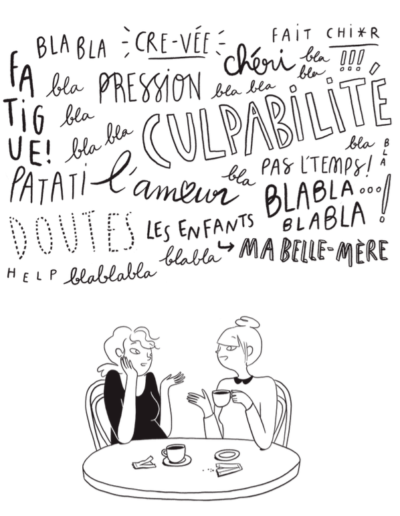 BLA BLA CRE-VÉE FAIT CHI*R
FATIGUE! bla PRESSION chéri bla bla !!!
bla bla bla
bla bla CULPABILITÉ
bla BLA
PATATI l'amour bla PAS L'TEMPS!
BLABLA...
DOUTES LES ENFANTS BLABLA !
blabla MA BELLE-MÈRE
HELP blablabla